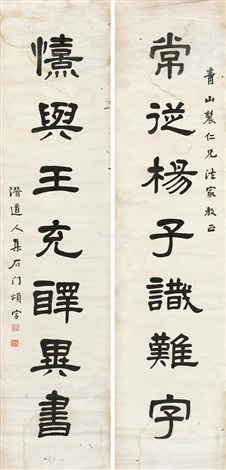 青山農仁兄法家教正
常從楊子識難字
憘與王充異書
潛道人集石門頌字